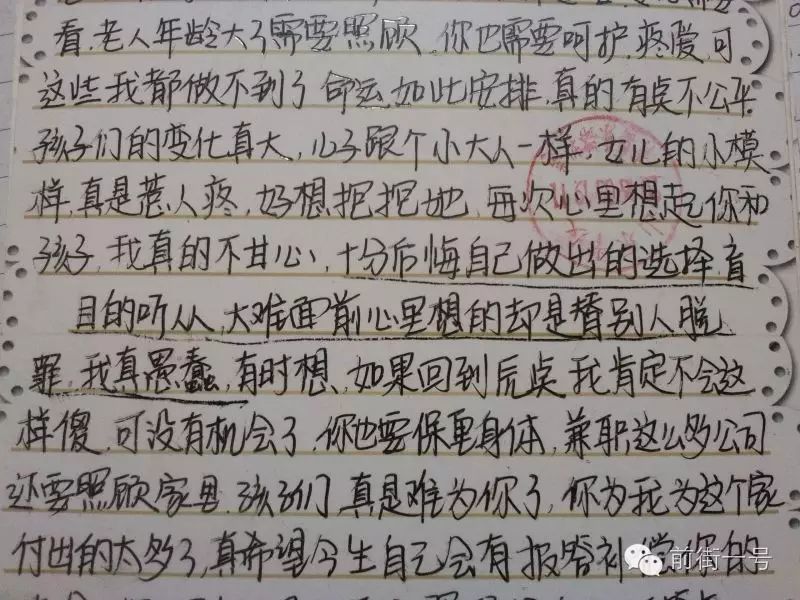 看.老人年龄大了需要照顾.你也需要呵护.疼爱,可
这些我都做不到了命运如此安排.真的有点不公平.
孩子们的变化真大,儿子跟个小大人一样.女儿的小模
样,真是惹人疼,好想抱抱她.每次心里想起你和
孩子,我真的不甘心,十分后悔自己做出的选择,盲
目的听从,大难面前心里想的却是替别人脱
罪,我真愚蠢,有时想,如果回到原点我肯定不会这
样傻,可没有机会了,你也要保重身体,兼职这么多公司
还要照顾家里.孩子们,真是难为你了,你为我为这个家
付出的太多了,真希望今生自己会有报答补偿你的
前街一号